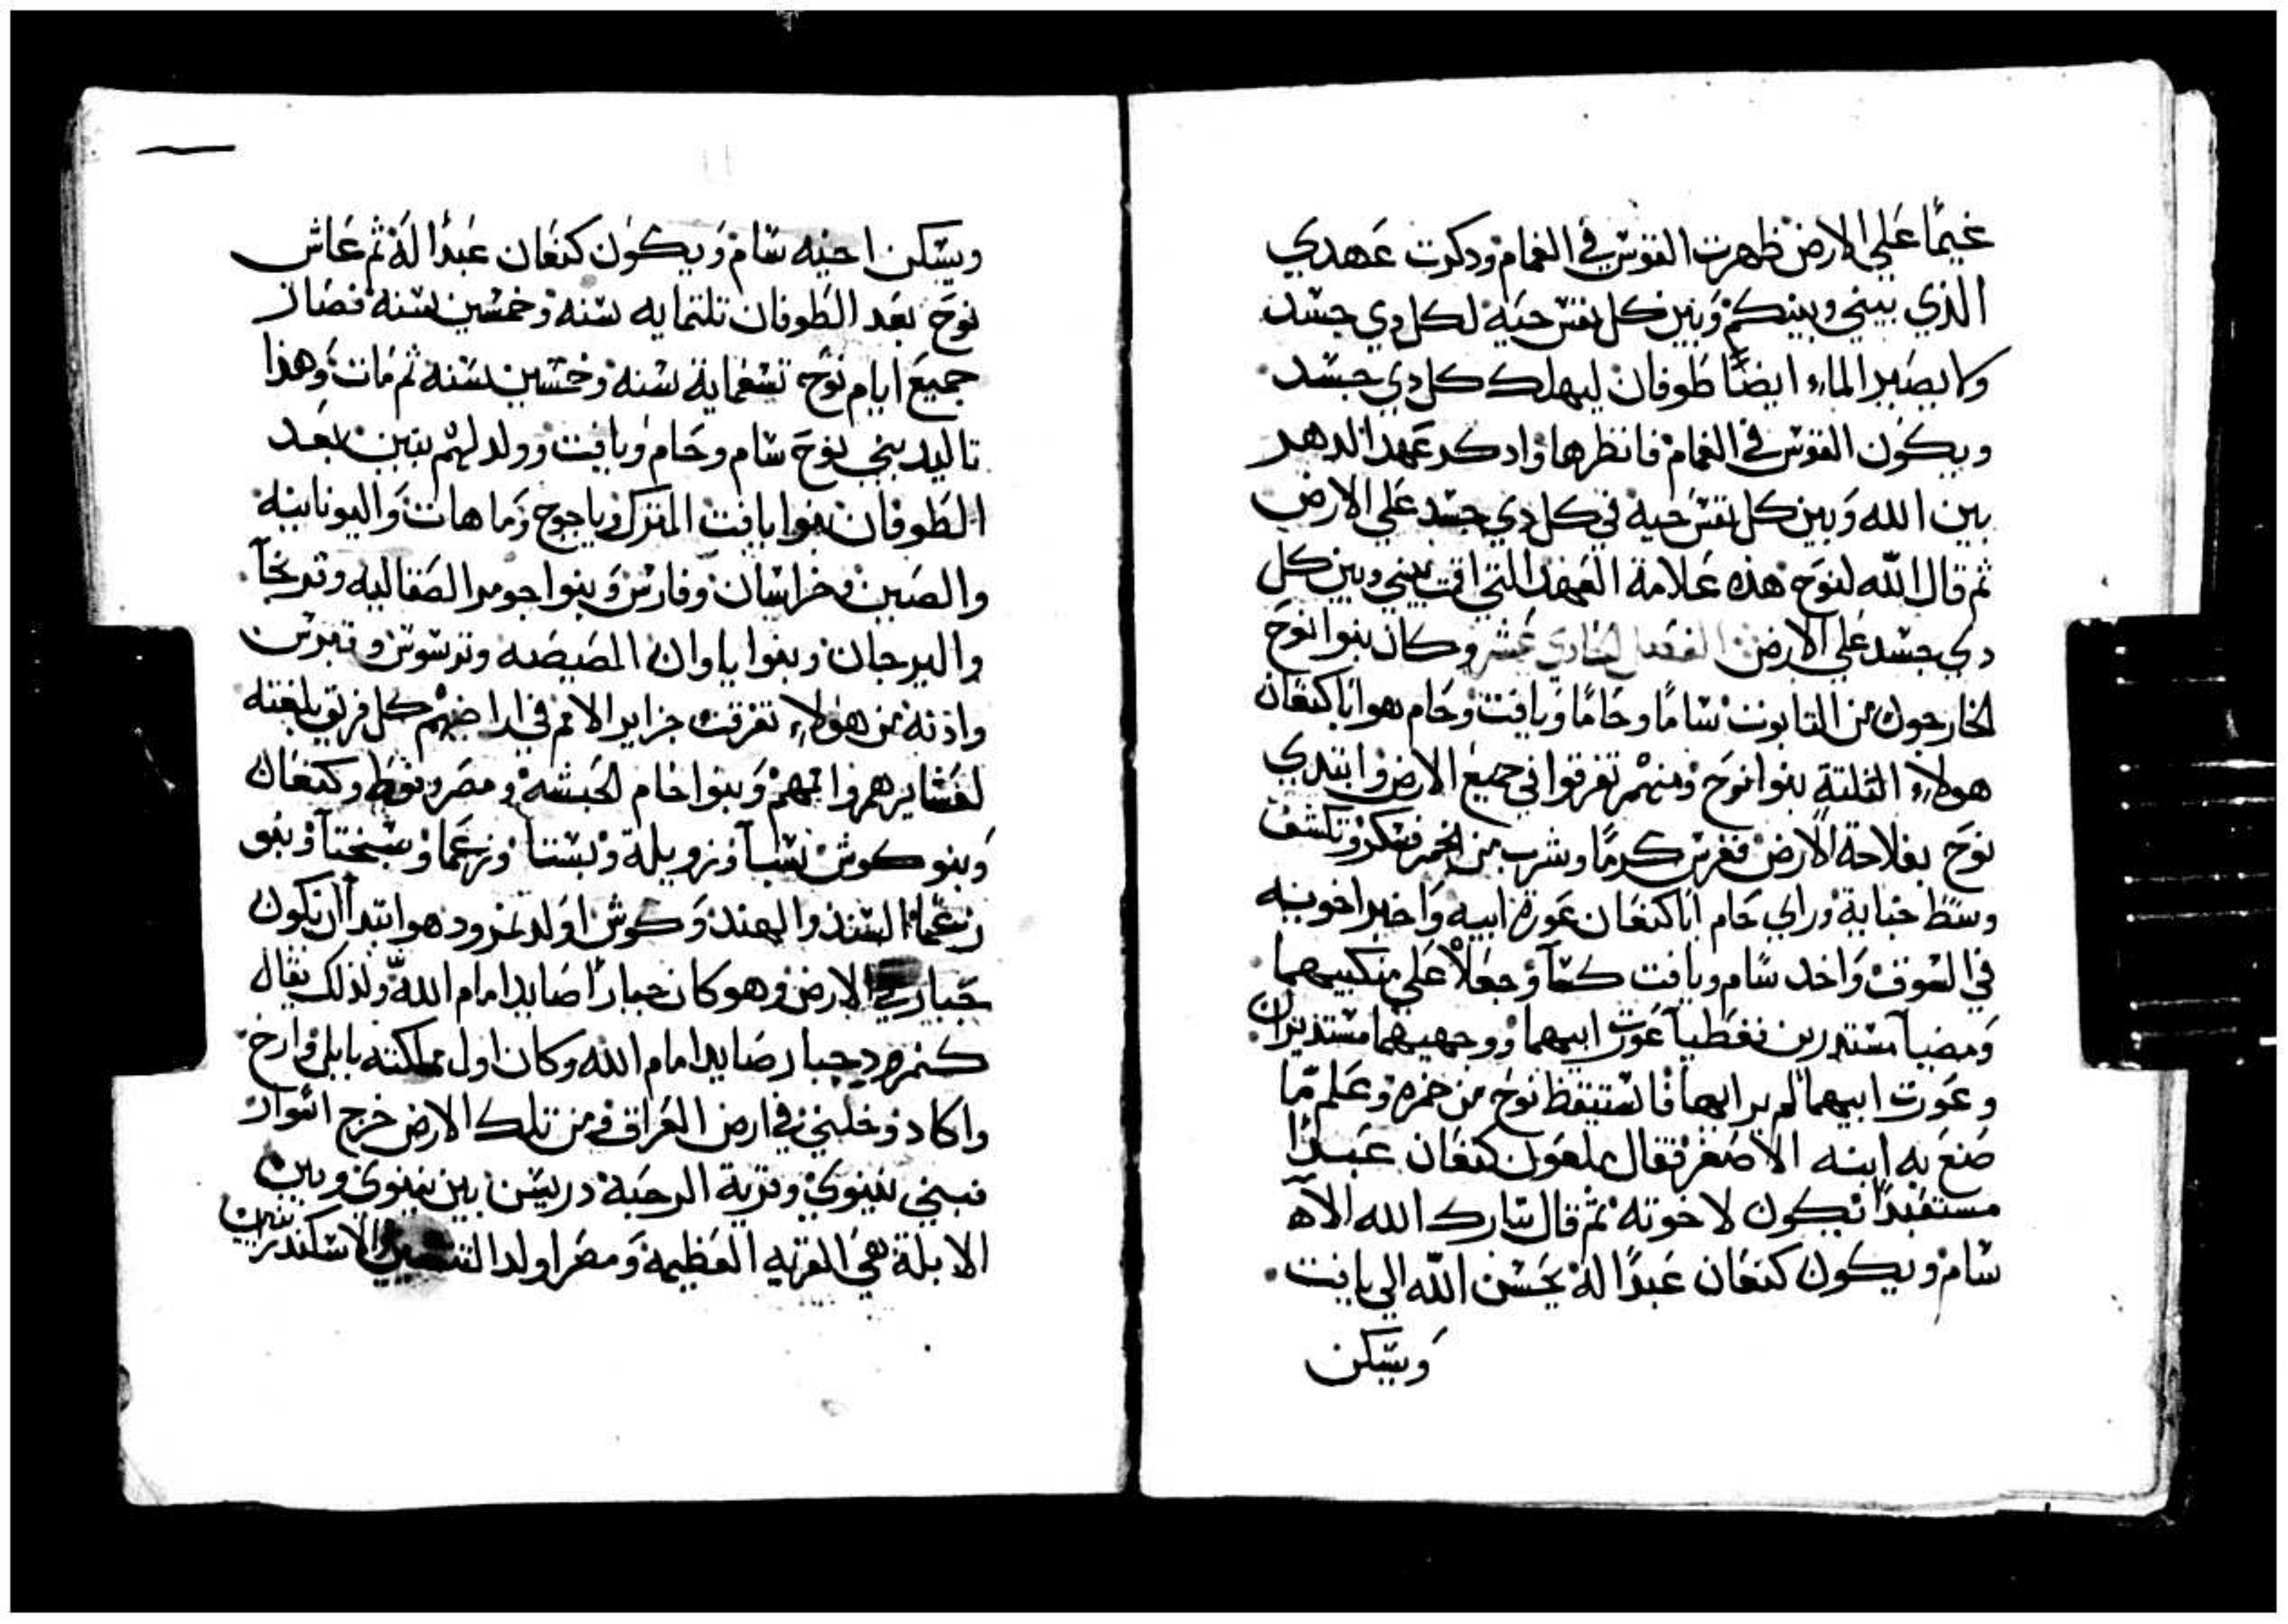 غيمًا علي الارض ظهرت القوس في الغمام ودكرت عهدي
الذي بيني وبينكم وبين كل نفس حيه لكل دي جسد
ولا يصير الماء ايضًا طوفان ليهلك كل دي جسد
ويكون القوس في الغمام فانظرها وادكر عهد الدهر
بين الله وبين كل نفس حية في كل دي جسد علي الارض
ثم قال الله لنوح هذه علامة العهد التي اقمت بيني وبين كل
دي جسد علي الارض الفصل الحادي عشر وكان بنوا نوح
الخارجون من التابوت سامًا وحامًا ويافت وحام هو ابا كنعان
هولاء الثلتة بنوا نوح ومنهم تفرقوا في جميع الارض وابتدي
نوح بفلاحة الارض فغرس كرمًا وشرب من الخمر فسكر وتكشف
وسط خبايه وراي حام ابا كنعان عورة ابيه واخبر اخوته
في السوق واخد سام ويافت كسآ وجعلاْ علي منكبيهما
ومضيا مستدرين فغطيا عورت ابيهما ووجهيهما مستديران
وعورت ابيهما لم يرايها فاستيقظ نوح من خمره وعلم ما
صنع به ابنه الاصغر فقال ملعون كنعان عبدًا
مستعبدًا يكون لاخوته ثم قال تبارك الله الاه
سام ويكون كنعان عبدًا له يحسن الله الي يافت
ويسكن
ويسكن اخيه سام ويكون كنعان عبدًا له ثم عاش
نوح بعد الطوفان تلتمايه سنه وخمسين سنه فصار
جميع ايام نوح تسعماية سنه وخمسين سنه ثم مات وهذا
تاليد بني نوح سام وحام ويافت وولد لهم بنين بعد
الطوفان بنوا يافت الترك وياجوج وماهات واليونانيه
والصين وخراسان وفارس وبنوا جومر الصقالبه
والبرجان وبنوا ياوان المصيصه وترسوس وقبرس
واذنه من هولاء تفرقت جزاير الامم في اراضيهم كل فريق بلغته
لعشايرهم واممهم وبنوا حام الحبشه ومصر وقوط وكنعان
وبنو كوش سبآ وزويلة وبستا ورعما وسبختآ وبنو
رعما السند والهند وكوش اولد نمرود هو ابتدا ان يكون
جبار في الارض وهو كان جبارًا صايدا امام الله ولذلك يقال
كنمرود جبار صايدا امام الله وكان اول مملكته بابل وارخ
واكاد وخلني في ارض العراق ومن تلك الارض خرج اتوار
فبني نينوي وقرية الرحبة دريسن بين نينوي وبين
الابلة هي القريه العظيمة ومصر اولد الاسكندرنيين